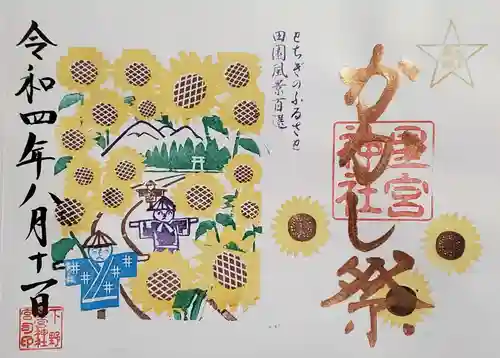 かかし祭
星宮
神社
とちぎのふるさと
田園風景百選
令和四年八月十一日
下野
宮司印